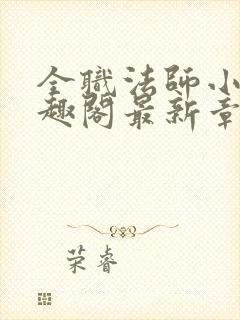 全職法師小
趣閣最新章
荣睿